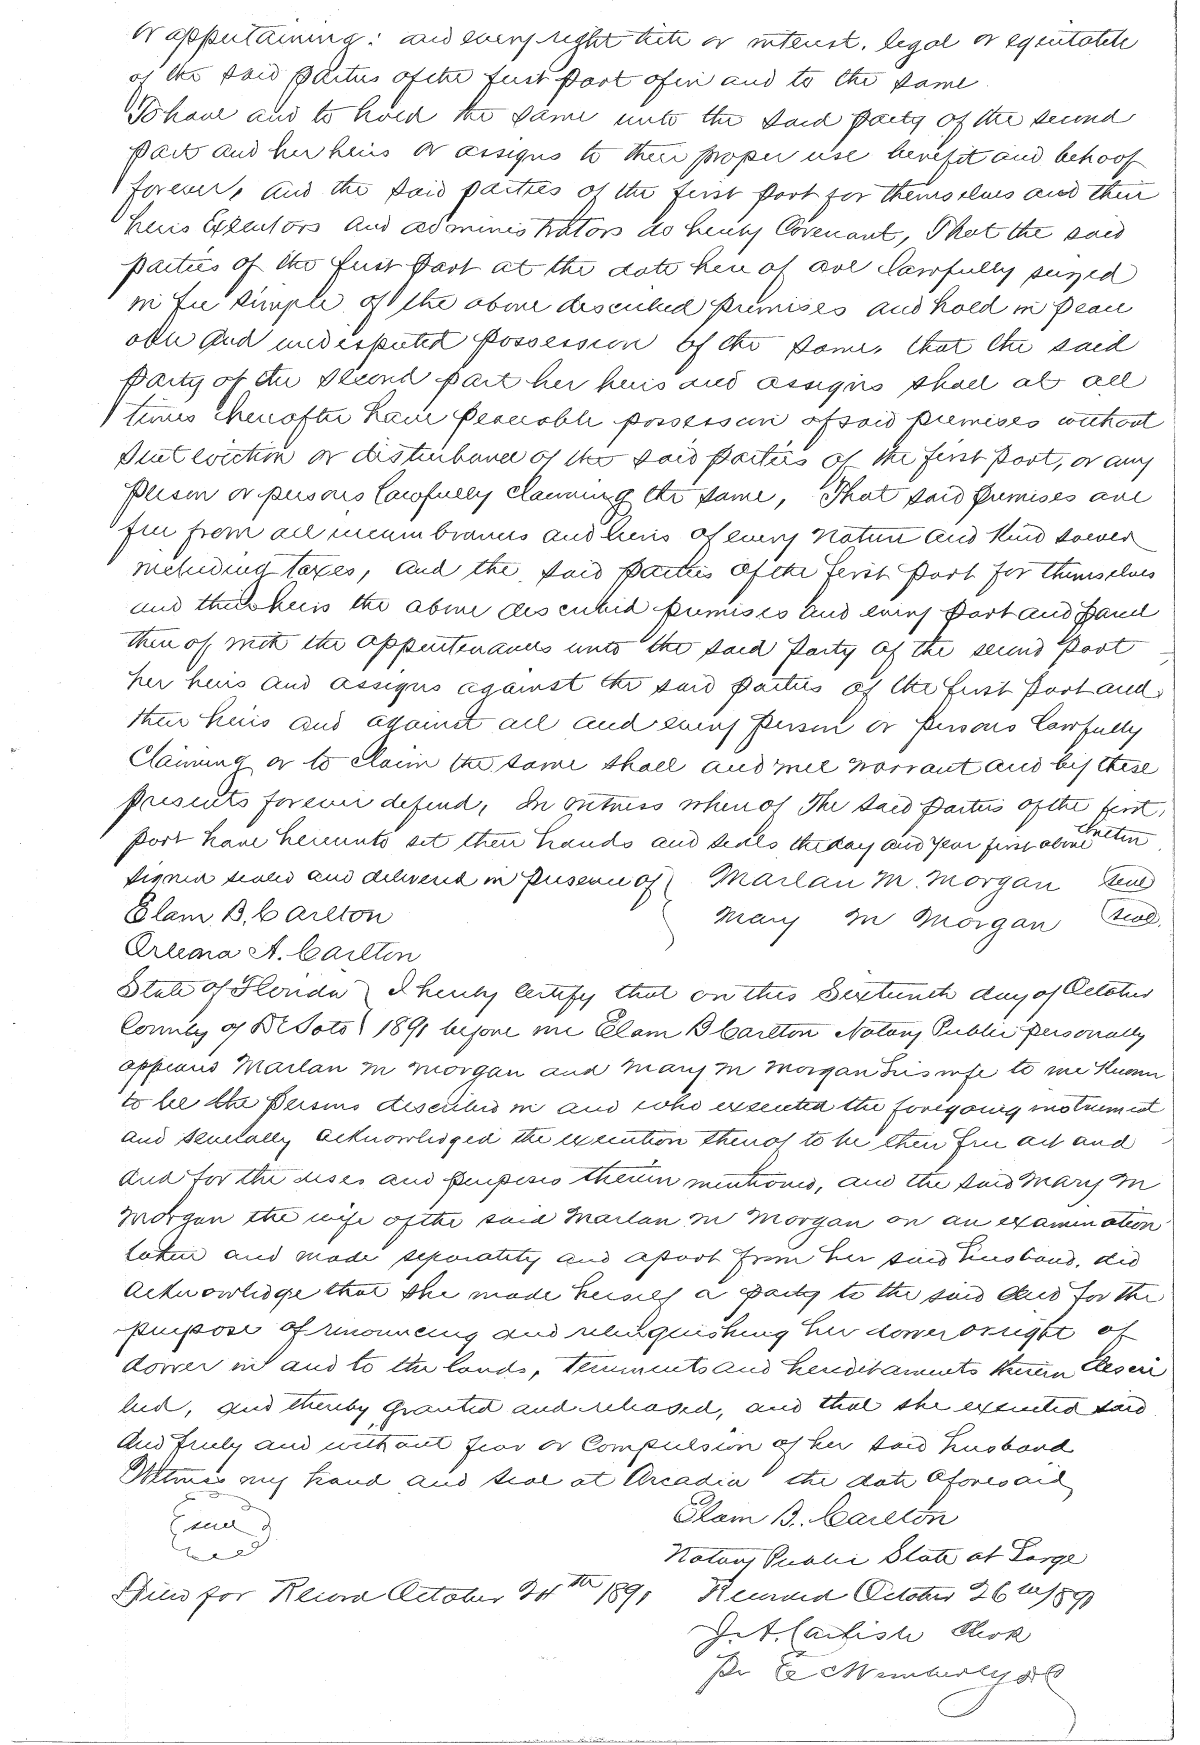 or appurtaining: and every right title or interest, legal or equitable
of the said parties of the first part of in and to the same
To have and to hold the same unto the said party of the second
part and her heirs or assigns to their proper use benefit and behoof
forever, and the said parties of the first part for themselves and their
heirs Executors and administrators do hereby Covenant, That the said
parties of the first part at the date here of are lawfully seized
in fee simple of the above described premises and hold in peace
able and undisputed possession of the same, that the said
party of the second part her heirs and assigns shall at all
times thereafter have peaceable possession of said premises without
suit eviction or disturbance of the said parties of the first part, or any
person or persons lawfully claiming the same, That said premises are
free from all incumbrances and liens of every nature and kind soever
including taxes, and the said parties of the first part for themselves
and their heirs the above described premises and every part and parcel
there of with the appurtenances unto the said party of the second part
her heirs and assigns against the said parties of the first part and
their heirs and against all and every person or persons lawfully
Claiming or to claim the same shall and will warrant and by these
presents forever defend, In witness where of The said parties of the first
part have hereunto set their hands and seals the day and year first above written
Signed sealed and delivered in presence of Marlan M. Morgan seal
Elam B. Carlton Mary M Morgan seal
Orleana A. Carlton
State of Florida I hereby certify that on this Sixteenth day of October
County of De Soto 1891 before me Elam B Carlton Notary Public personally
appears Marlan M Morgan and Mary M Morgan his wife to me known
to be the persons described in and who executed the foregoing instrument
and severally acknowledged the execution thereof to be their free act and
deed for the uses and purposes therein mentioned, and the said Mary M
Morgan the wife of the said Marlan M Morgan on an examination
taken and made separately and apart from her said husband, did
acknowledge that she made herself a party to the said deed for the
purpose of renouncing and relinquishing her dower or right of
dower in and to the lands, tenements and hereditaments therein descri
bed, and thereby granted and released, and that she executed said
deed freely and without fear or Compulsion of her said husband
Witness my hand and seal at Arcadia the date aforesaid
Elam B. Carlton
seal
Notary Public State at Large
Filed for Record October 24th 1891 Recorded October 26th 1891
J. A. Carlisle Clerk
Pr E C Wemberly DC